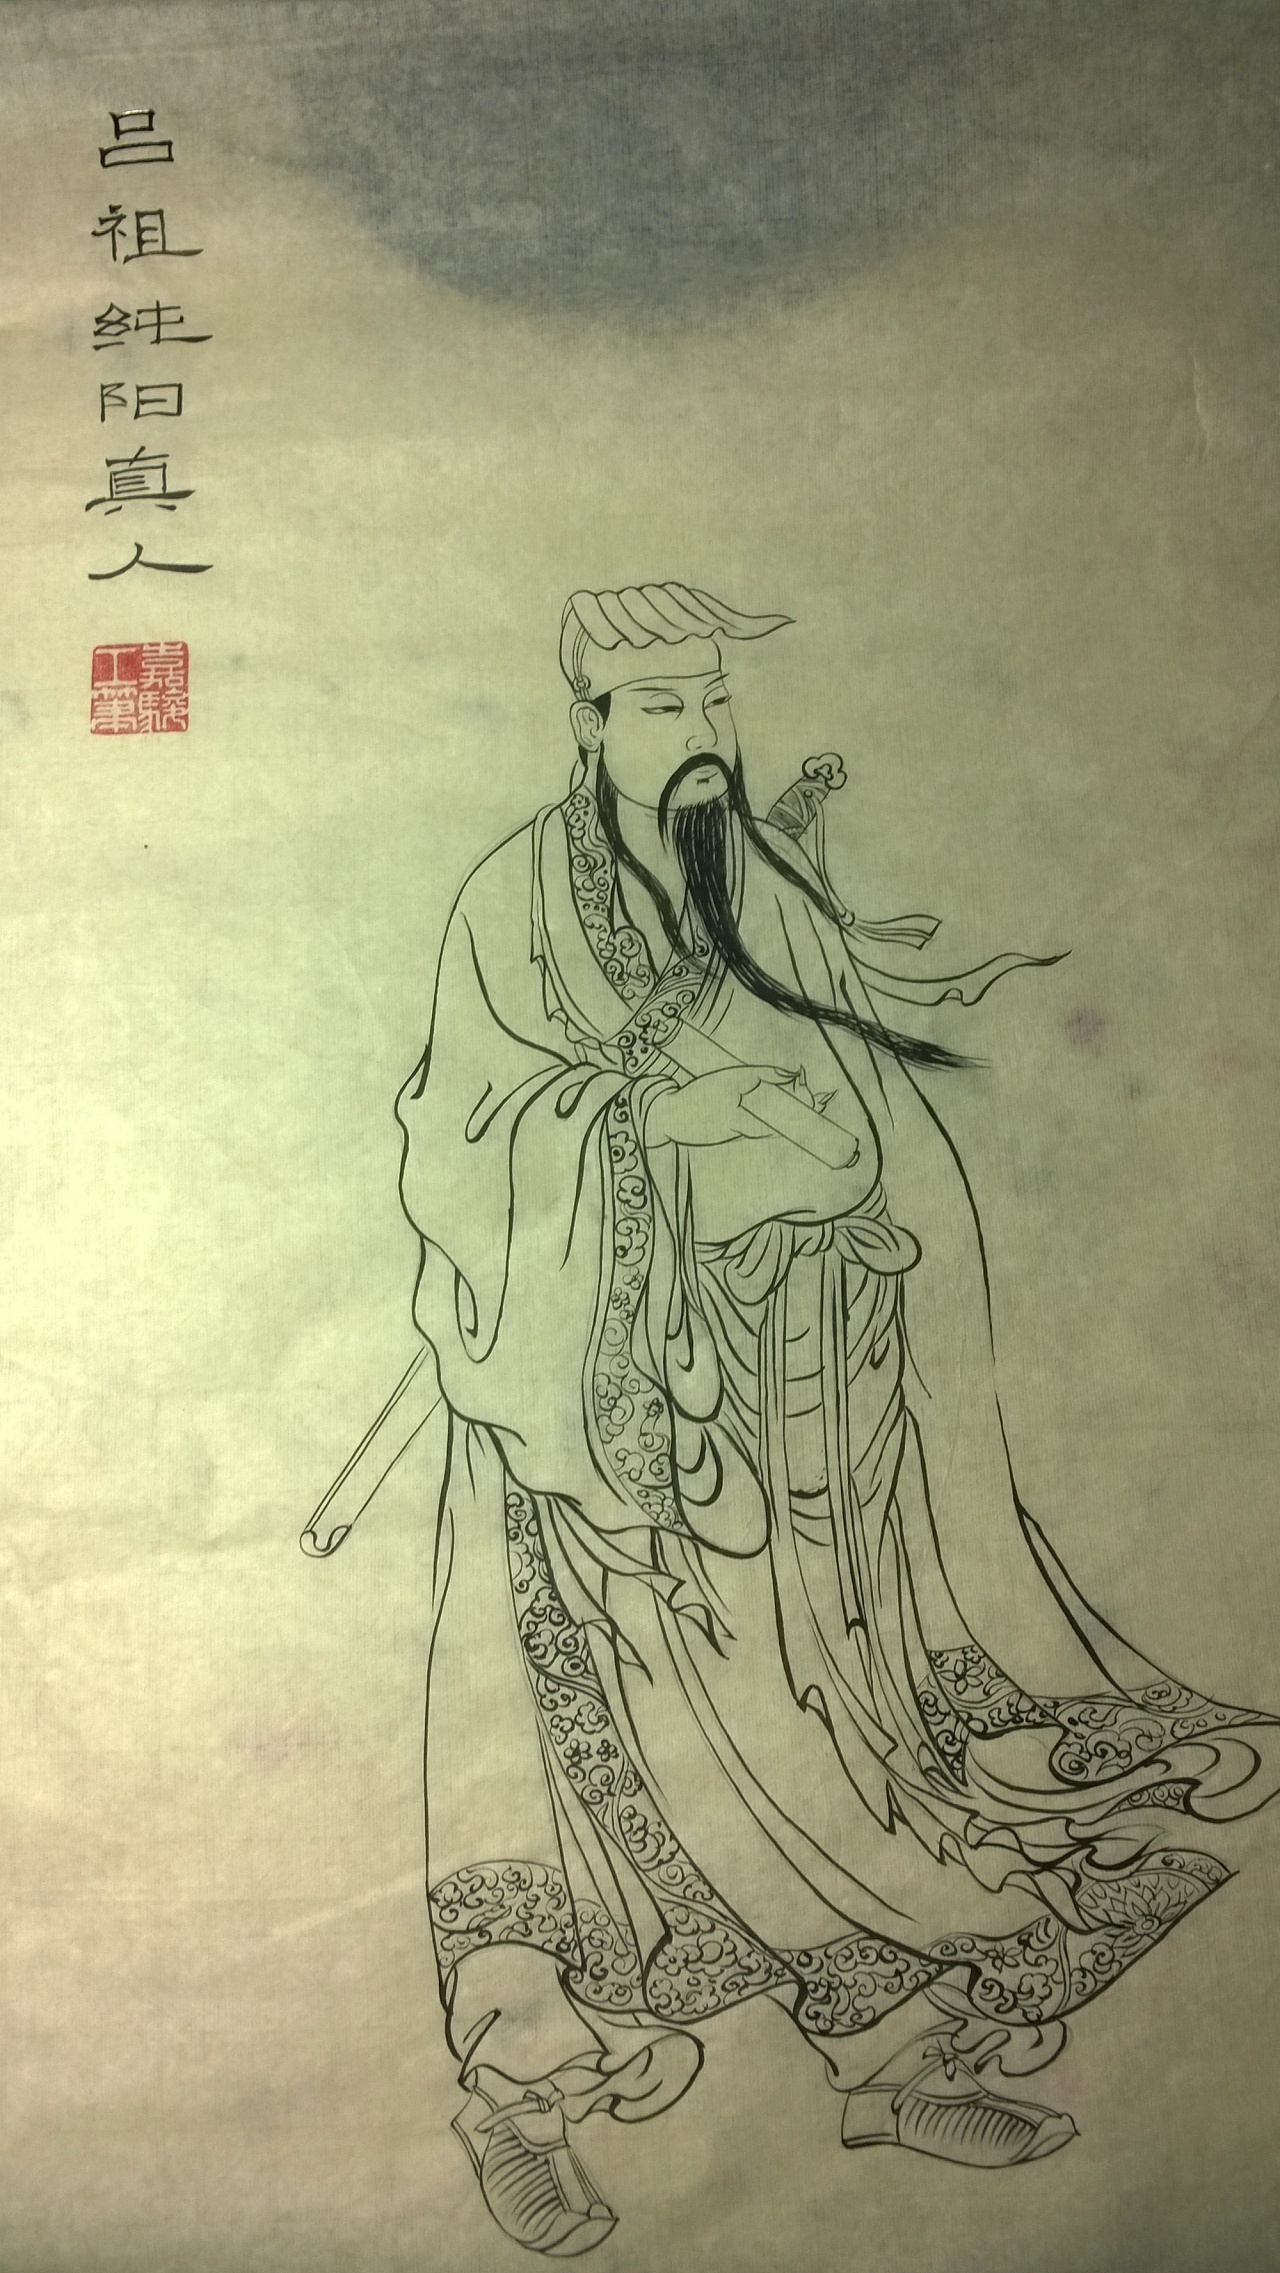 吕祖纯阳真人
嘉駿工筆